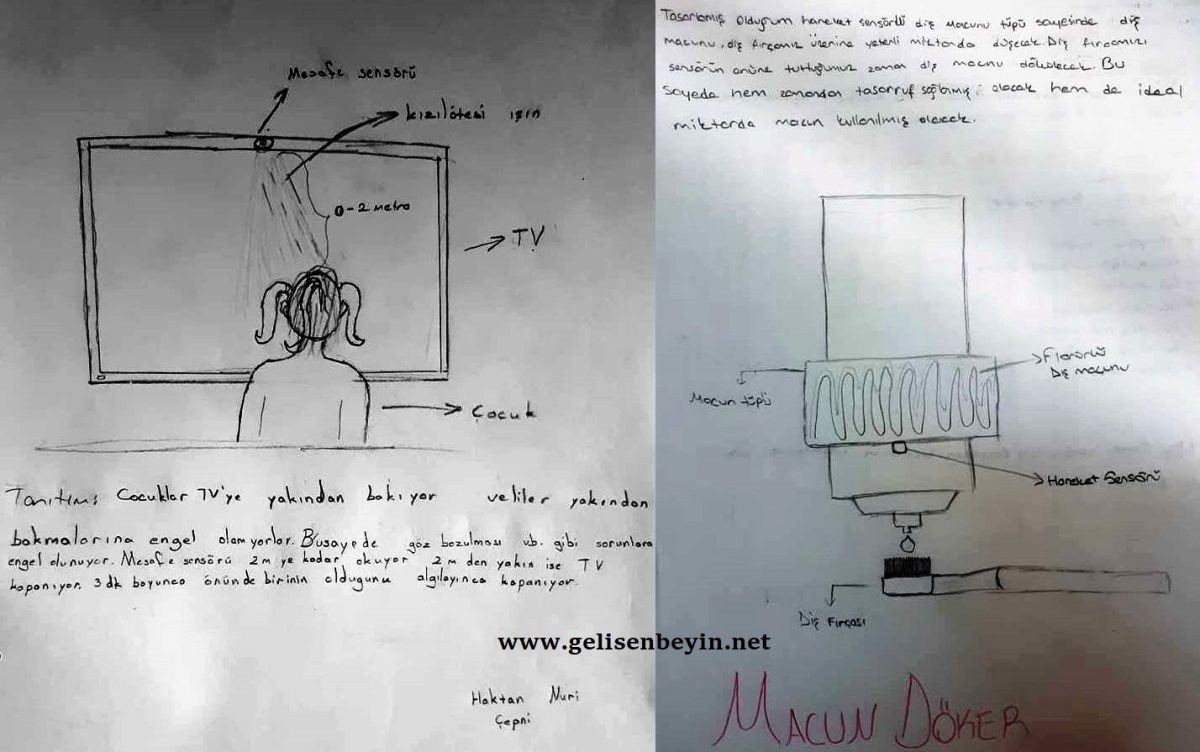 Mesafe sensörü
kızılötesi ışın
0-2 metre
TV
Çocuk
Tanıtım: Çocuklar TV'ye yakından bakıyor veliler yakından
bakmalarına engel olamıyorlar. Busayede göz bozulması vb. gibi sorunlara
engel olunuyor. Mesafe sensörü 2m ye kadar okuyor 2m den yakın ise TV
kapanıyor. 3 dk boyunca önünde birinin olduğunu algılayınca kapanıyor.
Haktan Nuri
Çepni
Tasarlamış olduğum hareket sensörlü diş macunu tüpü sayesinde diş
macunu, diş fırçamız üzerine yeterli miktarda düşecek. Diş fırçamızı
sensörün önüne tuttuğumuz zaman diş macunu dökülecek. Bu
sayede hem zamandan tasarruf sağlanmış olacak hem de ideal
miktarda macun kullanılmış olacak.
Florürlü
Diş macunu
Macun tüpü
Hareket Sensörü
Diş Fırçası
www.gelisenbeyin.net
MACUN DÖKER